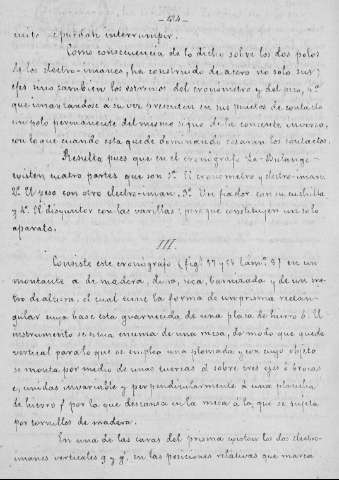 - 424 -
cuito y puedan interrumpir.
Como consecuencia de lo dicho sobre los dos polos
de los electro-imanes, ha construido de acero no solo sus
ejes sino tambien los estremos del cronometro y del peso, p.ª
que imantandose á su vez presenten en sus puntos de contacto
un polo permanente del mismo signo de la corriente inversa,
con lo que cuando esta quede dominando cesaran los contactos.
Resulta pues que en el cronografo Le-Bulange
existen cuatro partes que son 1.º El cronometro y electro-iman
2.º El peso con otro electro-iman. 3.º Un fiador con su cuchilla
y 4.º El disyuntor con las varillas; pero que constituyen un solo
aparato.
III.
Consiste este cronografo (fig.ª 37 y 38 lam.ª 3ª) en un
montante a de madera, dura, seca, barnizada y de un me-
tro de altura, el cual tiene la forma de un prisma rectan-
gular cuya base esta guarnecida de una plaza de hierro b. El
instrumento se situa encima de una mesa, de modo que quede
vertical para lo que se emplea una plomada y con cuyo objeto
se monta por medio de unas tuercas d sobre tres ejes ó brocas
e, unidas invariable y perpendicularmente á una platilla
de hierro f por la que descansa en la mesa á la que se sujeta
por tornillos de madera.
En una de las caras del prisma existen los dos electro-
imanes verticales g y g', en las posiciones relativas que marca